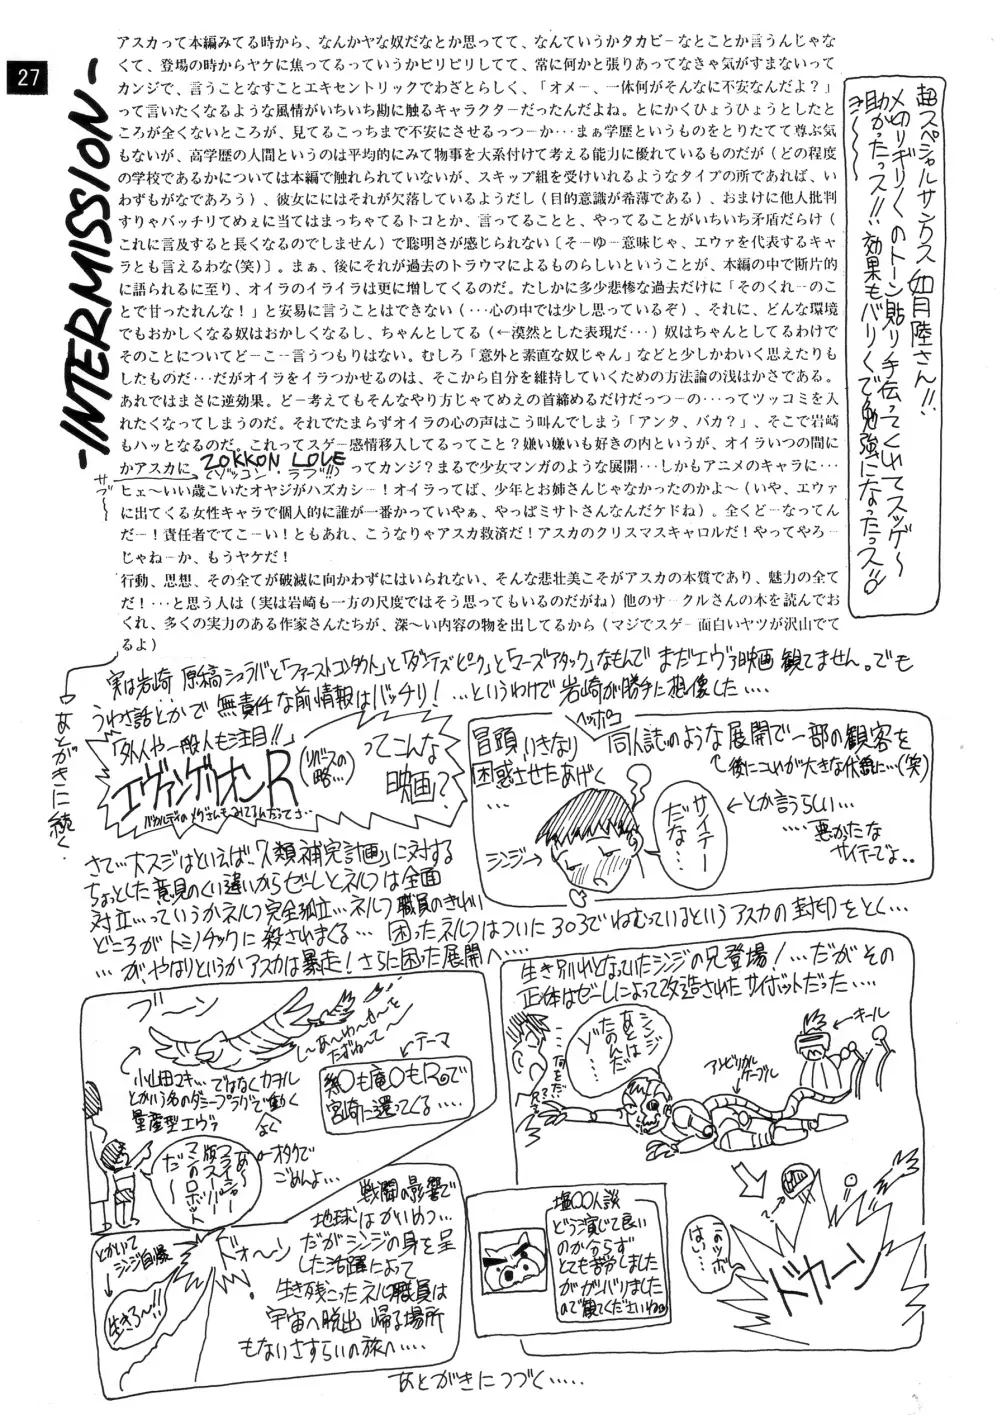 27
-INTERMISSION-
アスカって本編みてる時から、なんかヤな奴だなとか思ってて、なんていうかタカビーなとことか言うんじゃな
くて、登場の時からヤケに焦ってるっていうかピリピリしてて、常に何かと張りあってなきゃ気がすまないって
カンジで、言うことなすことエキセントリックでわざとらしく、「オメー、一体何がそんなに不安なんだよ？」
って言いたくなるような風情がいちいち勘に触るキャラクターだったんだよね。とにかくひょうひょうとしたと
ころが全くないところが、見てるこっちまで不安にさせるっつーか‥‥まぁ学歴というものをとりたてて尊ぶ気
もないが、高学歴の人間というのは平均的にみて物事を大系付けて考える能力に優れているものだが（どの程度
の学校であるかについては本編で触れられていないが、スキップ組を受けいれるようなタイプの所であれば、い
わずもがなであろう）、彼女ににはそれが欠落しているようだし（目的意識が希薄である）、おまけに他人批判
すりゃバッチリてめぇに当てはまっちゃてるトコとか、言ってることと、やってることがいちいち矛盾だらけ（
これに言及すると長くなるのでしません）で聡明さが感じられない〔そーゆー意味じゃ、エヴァを代表するキャ
ラとも言えるわな(笑)〕。まぁ、後にそれが過去のトラウマによるものらしいということが、本編の中で断片的
に語られるに至り、オイラのイライラは更に増してくるのだ。たしかに多少悲惨な過去だけに「そのくれーのこ
とで甘ったれんな！」と安易に言うことはできない（‥‥心の中では少し思っているぞ）、それに、どんな環境
でもおかしくなる奴はおかしくなるし、ちゃんとしてる（←漠然とした表現だ‥‥）奴はちゃんとしてるわけで
そのことについてどーこー言うつもりはない。むしろ「意外と素直な奴じゃん」などと少しかわいく思えたりも
したものだ‥‥だがオイラをイラつかせるのは、そこから自分を維持していくための方法論の浅はかさである。
あれではまさに逆効果。どー考えてもそんなやり方じゃてめえの首締めるだけだっつーの‥‥ってツッコミを入
れたくなってしまうのだ。それでたまらずオイラの心の声はこう叫んでしまう「アンタ、バカ？」、そこで岩崎
もハッとなるのだ。これってスゲー感情移入してるってこと？嫌い嫌いも好きの内というが、オイラいつの間に
かアスカに ZOKKON LOVE ってカンジ？まるで少女マンガのような展開‥‥しかもアニメのキャラに‥‥
（ゾッコン・ラブ!!）
ヒェ～いい歳こいたオヤジがハズカシー！オイラってば、少年とお姉さんじゃなかったのかよ～（いや、エヴァ
に出てくる女性キャラで個人的に誰が一番かっていやぁ、やっぱミサトさんなんだケドね）。全くどーなってん
だー！責任者でてこーい！ともあれ、こうなりゃアスカ救済だ！アスカのクリスマスキャロルだ！やってやろー
じゃねーか、もうヤケだ！
行動、思想、その全てが破滅に向かわずにはいられない、そんな悲壮美こそがアスカの本質であり、魅力の全て
だ！‥‥と思う人は（実は岩崎も一方の尺度ではそう思ってもいるのだがね）他のサークルさんの本を読んでお
くれ、多くの実力のある作家さんたちが、深～い内容の物を出してるから（マジでスゲー面白いヤツが沢山でて
るよ）
サブ～
超スペシャルサンクス 如月陸さん!!
〆切りギリギリのトーン貼り手伝ってくれてスッゲ～
助かったっス!! 効果もバリバリで勉強になったっス
あとがきに続く
実は岩崎、原稿シュラバと「ファーストコンタクト」と「ダンテズピーク」と「マーズアタック」なもんで まだエヴァ映画 観てません。でも
うわさ話とかで 無責任な前情報はバッチリ！…というわけで 岩崎が勝手に想像した….
「外人や一般人も注目!!」
エヴァンゲリオンR
(リバースの略…)
ってこんな映画？
冒頭、いきなり 同人誌のような展開で一部の観客を
ヘッポコ
困惑させたあげく…
後にコレが大きな伏線に…(笑)
シンジ→
サイテーだな…
←とか言うらしい…
….悪かたな
サイテーでよ..
さて…大スジはといえば、「人類補完計画」に対する
ちょっとした意見のくい違いからゼーレとネルフは全面
対立…っていうかネルフ完全孤立…ネルフ職員のきわい
どころがトミノチックに殺されまくる… 困ったネルフはついに303でねむっているというアスカの封印をとく…
…が、やはりというかアスカは暴走！さらに困った展開へ….
ブーン
小山田マキ…ではなくカヲル
とかいう名のダミープラグで動く
量産型エヴァ
テーマ
宮崎に還ってくる….
あ～
だ～
←オタクで
ごめんよ…
生き別れとなっていたシンジの兄登場！…だがその
正体はゼーレによって改造されたサイボットだった….
シンジ
あとはたのんだゾ
アンビリカルケーブル
←キール
このツボはいい…
ドカーン
塩〇〇人談
どう演じて良い
のか分らず
とても苦労しました
がガンバリました
ので観てくださいね
とかいって
シンジ自爆
生きろ～!!
ドォーン
戦闘の影響で
地球はかいめつ…
だがシンジの身を呈
した活躍によって
生き残ったネルフ職員は
宇宙へ脱出 帰る場所
もないさすらいの旅へ….
あとがきにつづく…..